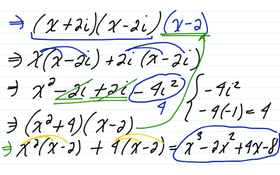 ⇒ (x+2i)(x-2i)(x-2)
⇒ x(x-2i)+2i(x-2i)
⇒ x² -2i +2i -4i²
4
{ -4i²
-4(-1) = 4
⇒ (x²+4)(x-2)
⇒ x²(x-2) + 4(x-2) = x³-2x²+4x-8